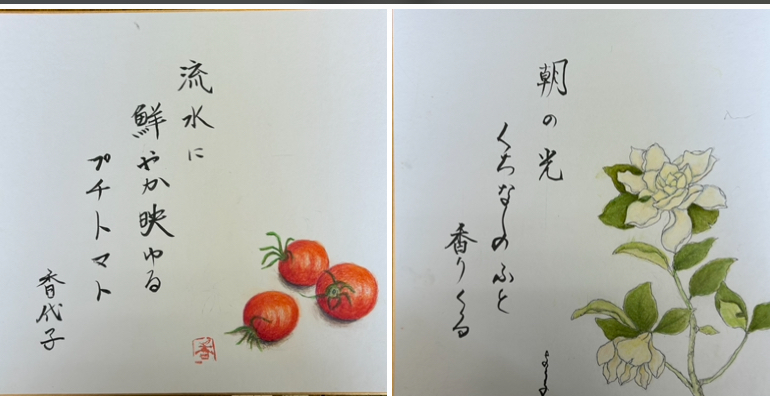 流水に
鮮やか映ゆる
プチトマト
香代子
香
朝の光
くちなしのふと
香りくる